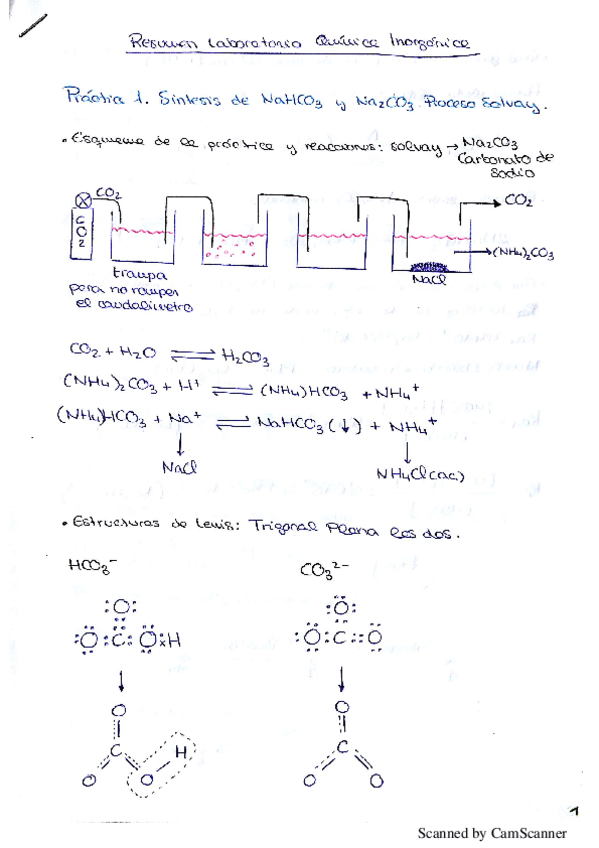 Resumen Laboratorio Química Inorgánica
Práctica 1. Síntesis de NaHCO3 y Na2CO3. Proceso Solvay.
• Esquema de la práctica y reacciones: solvay → Na2CO3
Carbonato de
Sodio
CO2
CO2
CO2
→ (NH4)2CO3
NaCl
trampa
para no romper
el caudalímetro
CO2 + H2O ⇌ H2CO3
(NH4)2CO3 + H+ ⇌ (NH4)HCO3 + NH4+
(NH4)HCO3 + Na+ ⇌ NaHCO3 (↓) + NH4+
NaCl
NH4Cl(ac)
• Estructuras de Lewis: Trigonal Plana las dos.
HCO3-
CO3 2-
:O:
:O:C:O×H
:O:
:O:C::O
O
C
H
O
O
O
C
O
O
1
Scanned by CamScanner